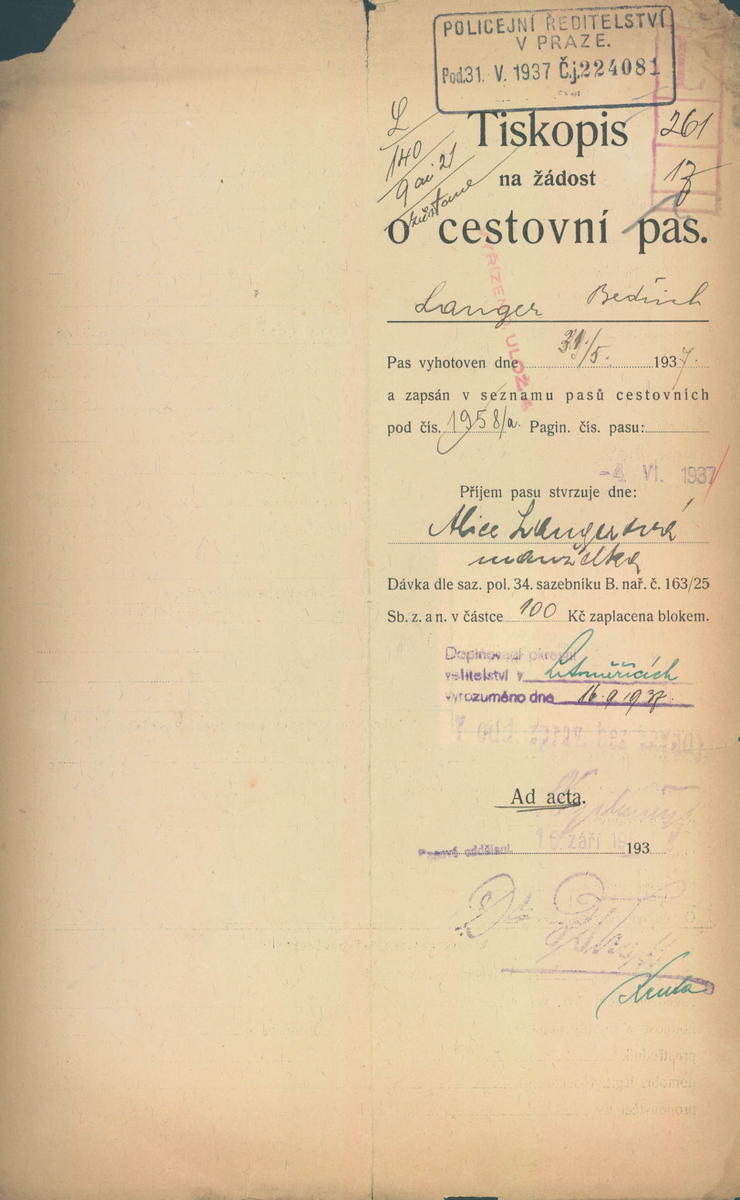 POLICEJNÍ ŘEDITELSTVÍ
V PRAZE.
Pod. 31. V. 1937 Č.j. 224081
L
140
Tiskopis
261
na žádost
17
o cestovní pas.
Langer Bedřich
Pas vyhotoven dne 31./5. 1937.
a zapsán v seznamu pasů cestovních
pod čís. 1958/a. Pagin. čís. pasu:
-4. VI. 1937
Příjem pasu stvrzuje dne:
Alice Langerová
manželka
Dávka dle saz. pol. 34. sazebníku B. nař. č. 163/25
Sb. z. a n. v částce 100 Kč zaplacena blokem.
Doplňovací okresní
velitelství v Litoměřicích
vyrozuměno dne 16.9.1937.
Ad acta.
Pasové oddělení.
16. září 193